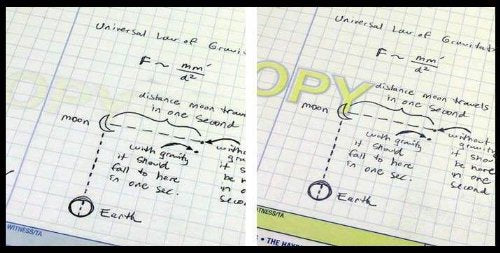 Universal Law of Gravi
F ~ mm'
d²
distance moon trav
in one second
moon
with gravity
it should
fall to here
in one sec.
witho
gra
it s
be h
in o
seco
Earth
WITNESS/TA
Universal Law of Gravitat
F ~ mm'
d²
OPY
distance moon travels
in one second
moon
with gravity
it should
fall to here
in one sec.
without
it shou
in one
second
Earth
TNESS/TA
• THE HAY